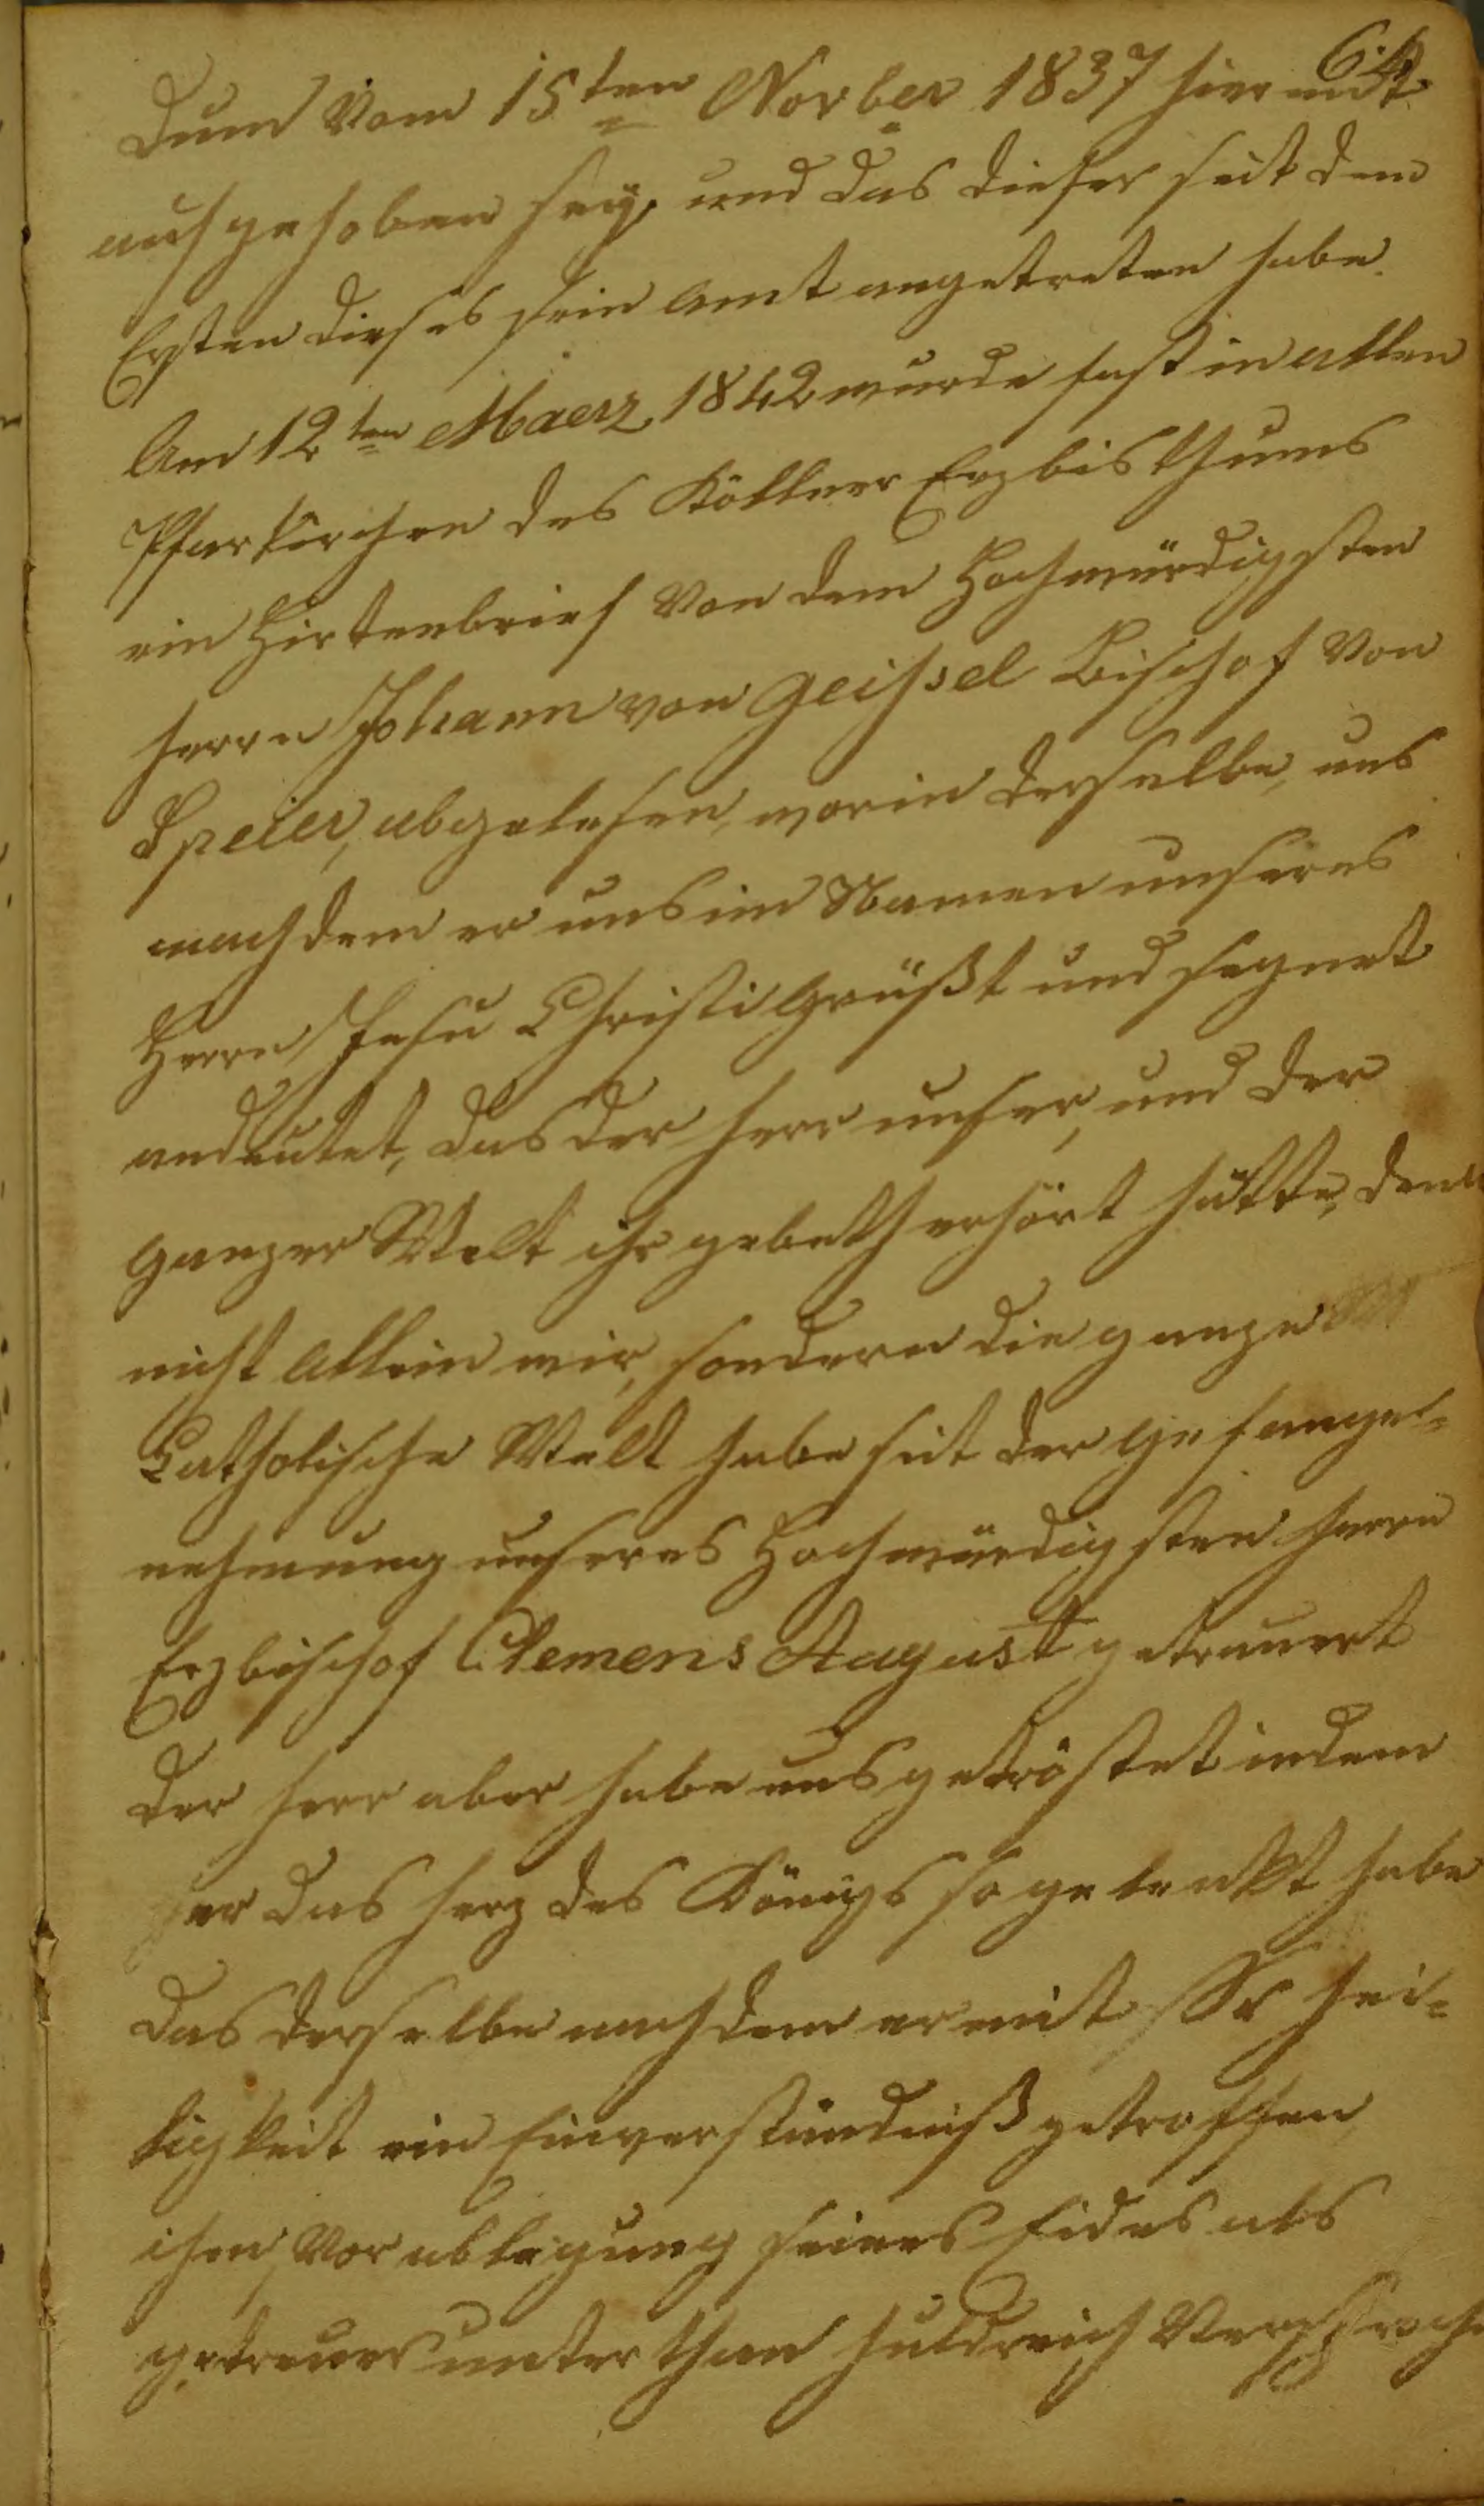 64.
dum Vom 15ten Novber 1837 hiermit
aufgehoben sey, und das dieser seit dem
Ersten dieses sein Amt angetreten habe.
Am 12ten Maerz 1842 wurde fast in allen
Pfarkirchen des Köllner Erzbisthums
ein Hirtenbrief Von dem Hochwürdigsten
Herrn Johann von Geissel Bischof Von
Speier, abgelesen, worin derselbe, uns
nachdem er uns im Namen unseres
Herrn Jesu Christi Grüßt und segnet
andeutet, das der Herr unser, und der
ganzer Welt ihr gebeth erhört hätte, denn
nicht Allein wir, sondern die ganze
Catholische Welt habe seit der Gefangen=
nehmung unseres Hochwürdigsten Herrn
Erzbischof Clemens August getrauert
der Herr aber habe uns getröstet indem
er das Herz des Königs so gelenkt habe
das derselbe nachdem er mit Sr Hei=
ligkeit ein Einverständniß getroffen
ihm, Vor ablegung seines Eides als
getreuer unterthan huldreich Versproche